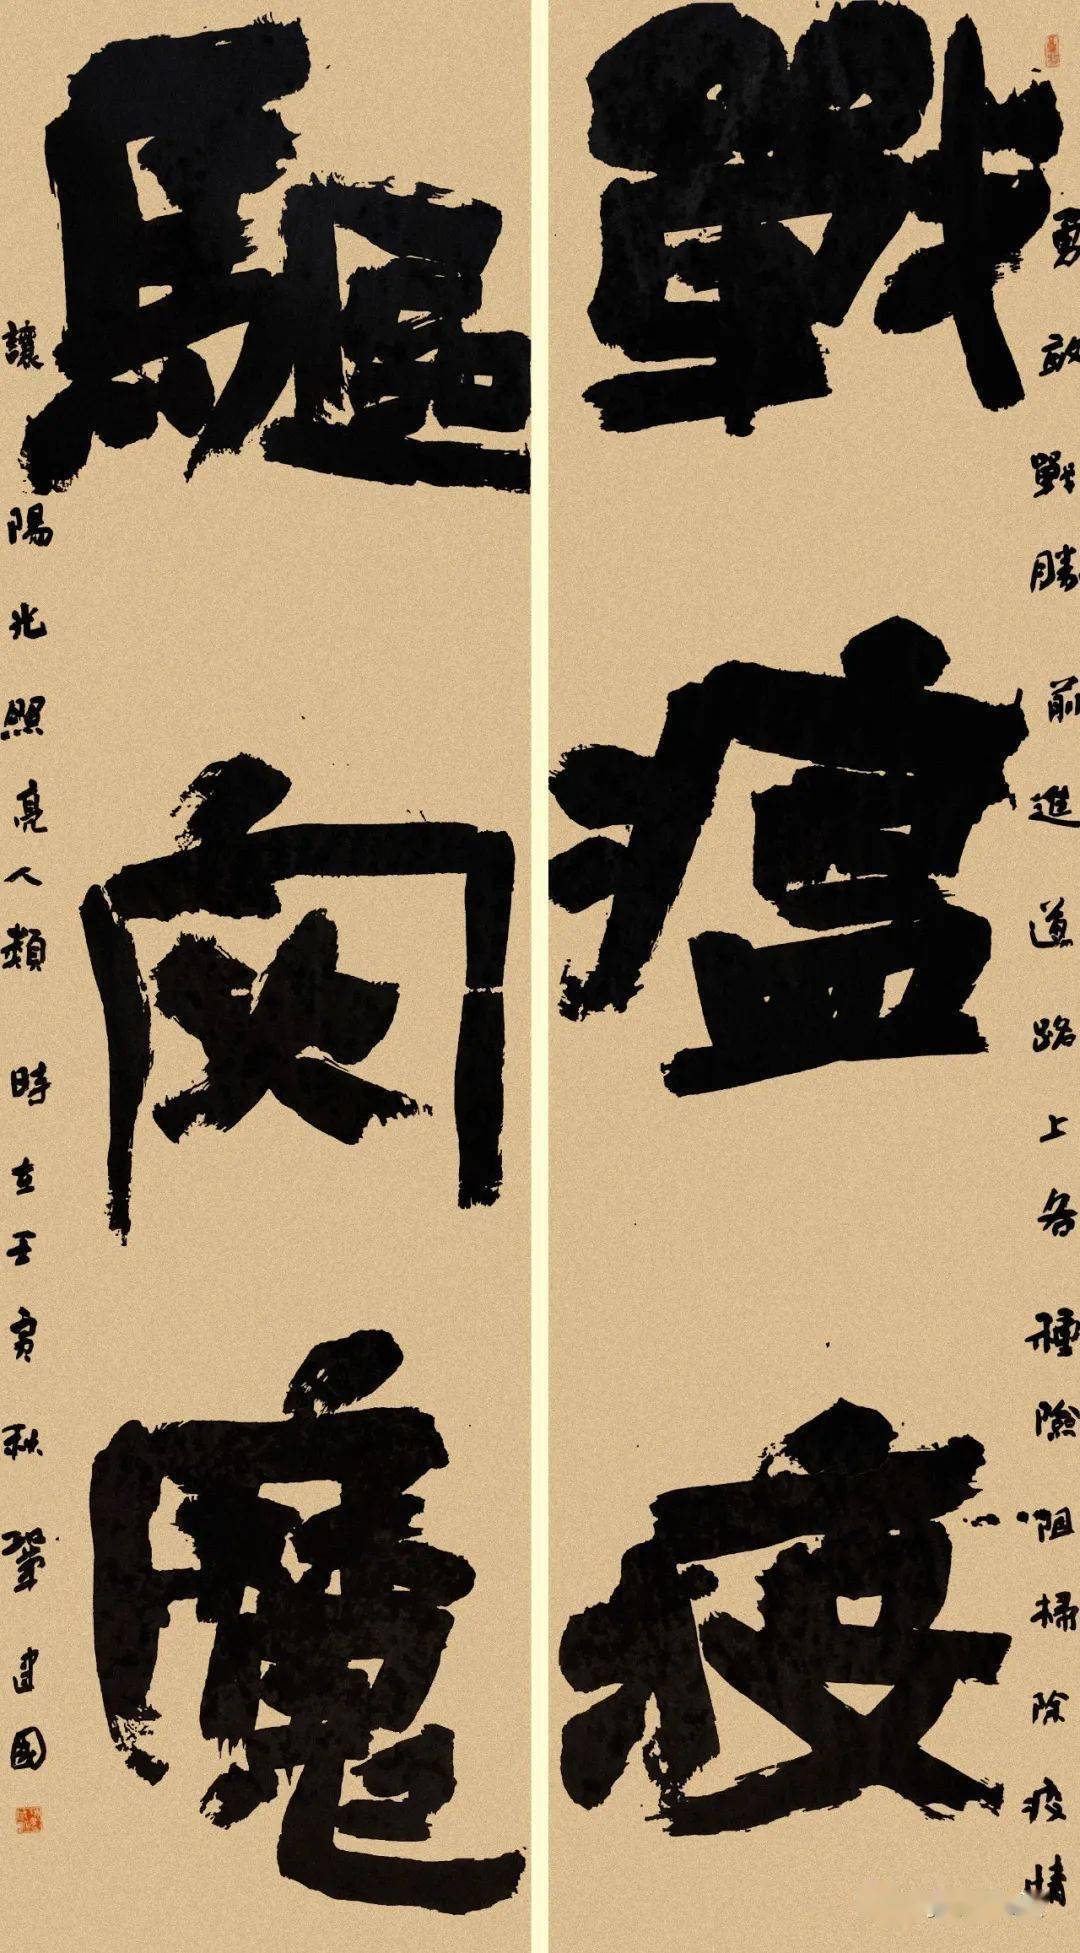 勇敢戰勝前進道路上各種險阻掃除疫情
戰瘟疫
驅灾魔
讓陽光照亮人類 時在壬寅秋 鞏建國